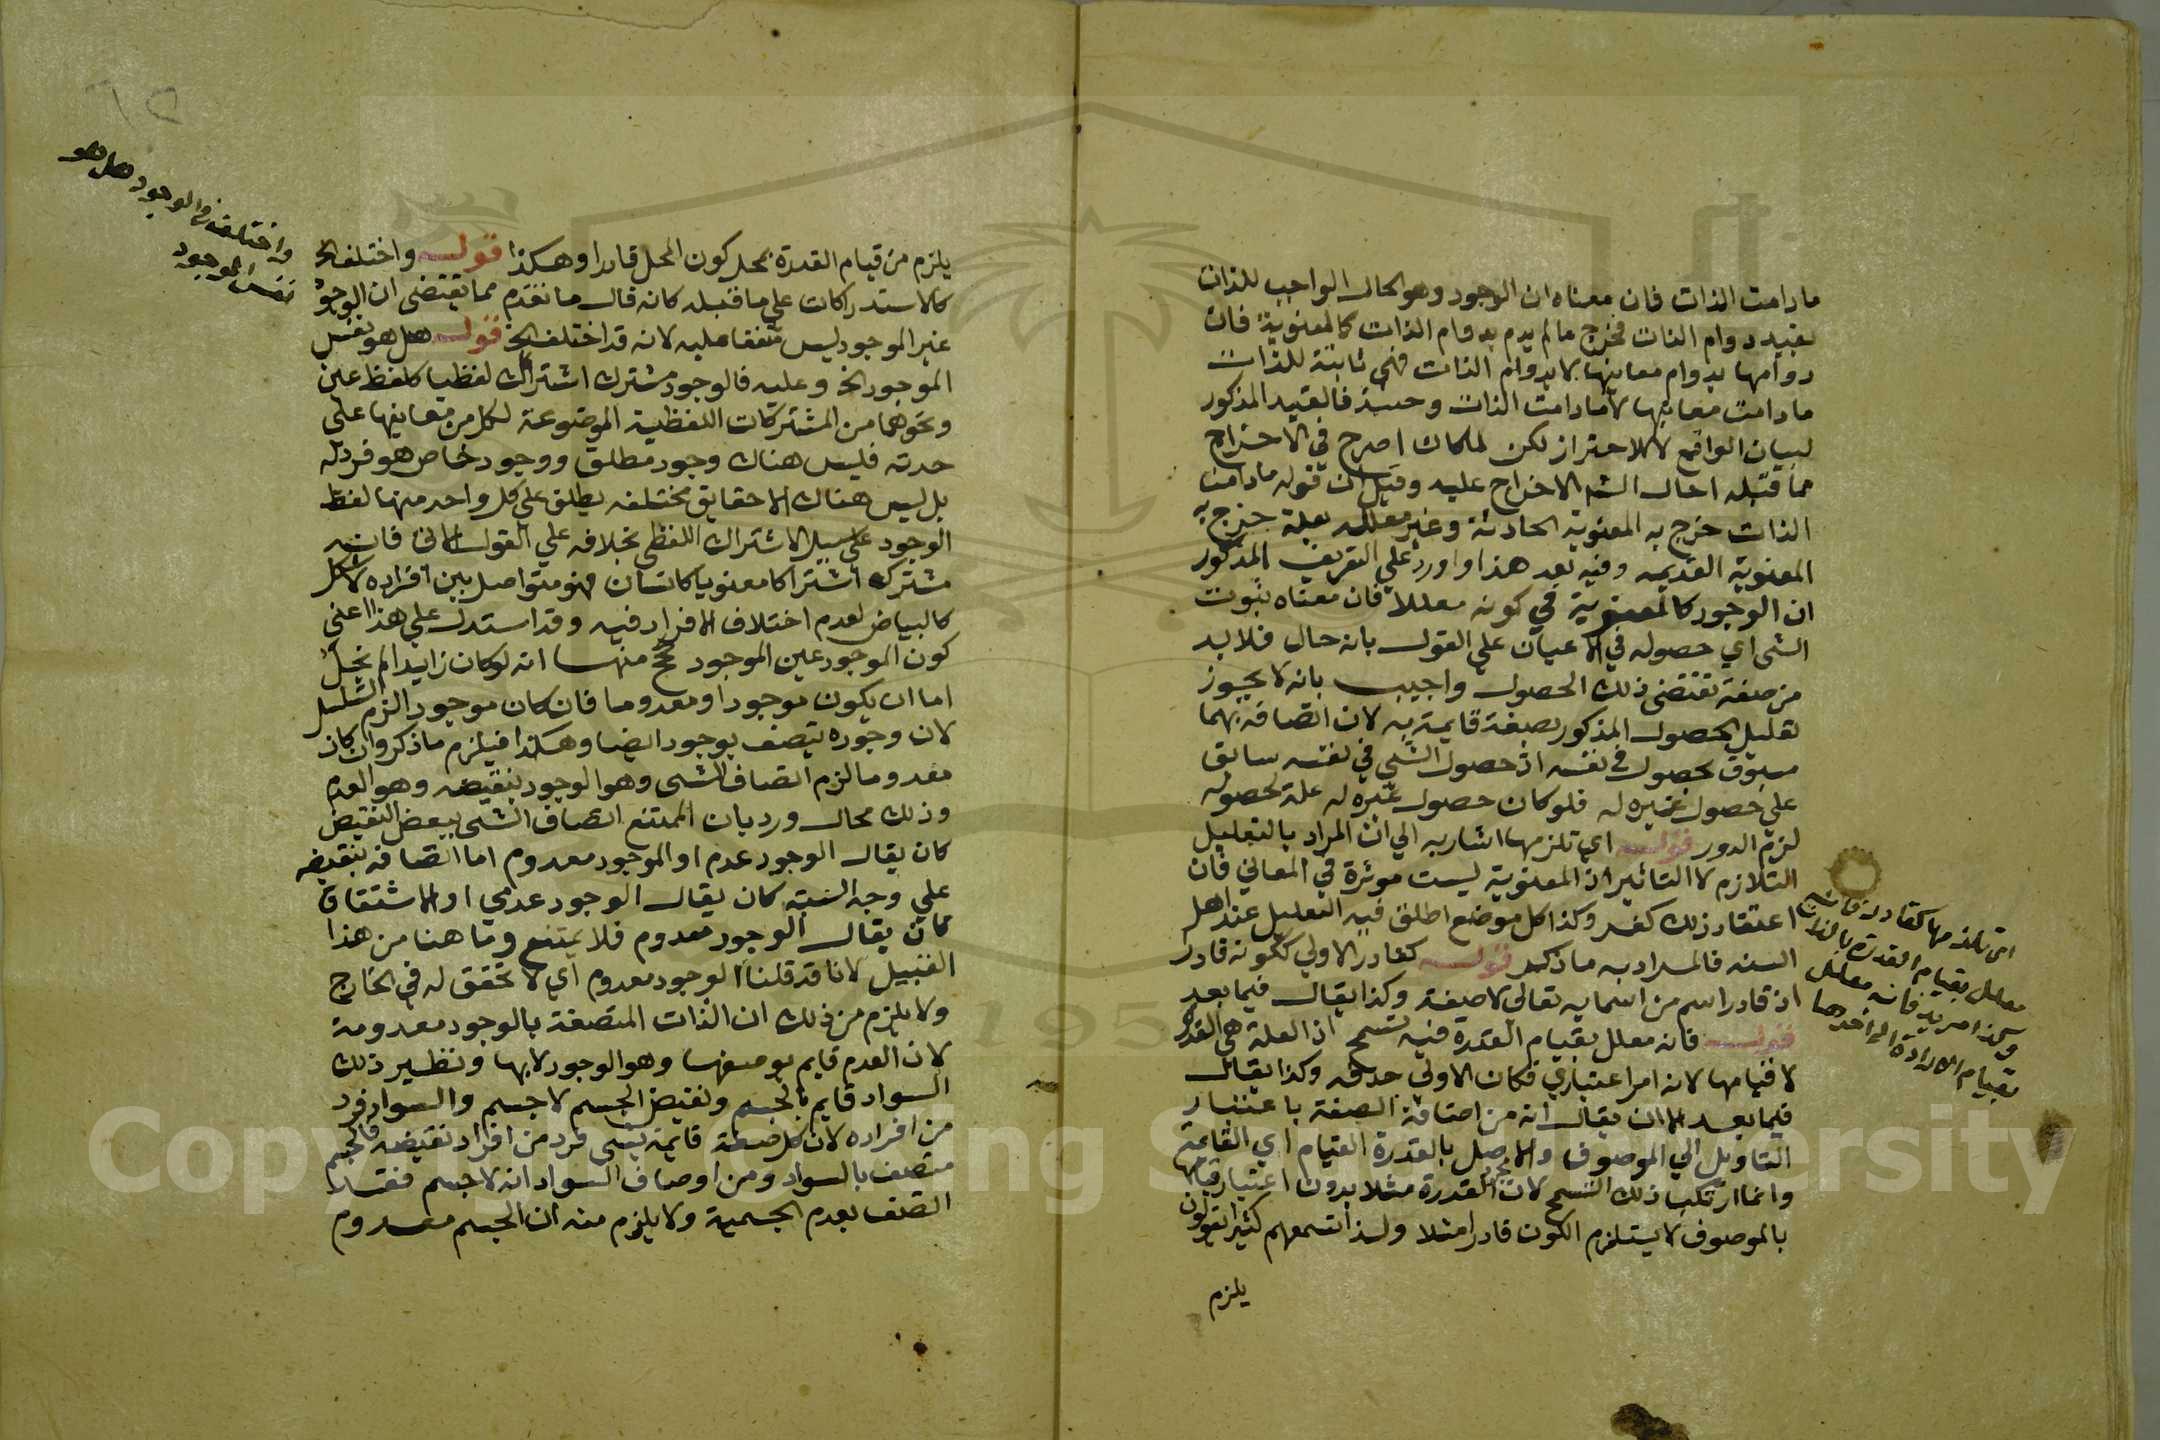 مادامت الذات فان معناه ان الوجود وهو الحال الواجب للذات
بقيد دوام الذات فخرج مالم يدم بدوام الذات كالمعنوية فان
دوامها بدوام معانيها لا بدوام الذات فهي ثابتة للذات
مادامت معانيها لا مادامت الذات وحينئذ فالقيد المذكور
لبيان الواقع لا للاحتراز لكن لما كان اصرح في الاخراج
مما قبله احال الشم الاخراج عليه وقيل ان قوله مادامت
الذات خرج به المعنوية الحادثة وغير معللة بعلة خرج به
المعنوية القديمه وفيه بعد هذا واورد علي التعريف المذكور
ان الوجود كالمعنوية في كونه معللا فان معناه ثبوت
الشي اي حصوله في الاعيان علي القول بانه حال فلا بد
من صفة تقتضي ذلك الحصول واجيب بانه لا يجوز
تعليل الحصول المذكور بصفة قايمة به لان اتصافه بهما
مسبوق بحصوله في نفسه اذ حصول الشي في نفسه سابق
علي حصول غيره له فلو كان حصول غيره له علة لحصوله
لزم الدور قوله اي تلزمها اشار به الي ان المراد بالتعليل
التلازم لا التاثير اذ المعنوية ليست موثرة في المعاني فان
اعتقاد ذلك كفر وكذا كل موضع اطلق فيه التعليل عند اهل
السنه فالمراد به ما ذكر قوله كقادر الاولي ككونه قادرا
اذ قادر اسم من اسمايه تعالي لا صفة وكذا يقال فيما بعد
قوله فانه معلل بقيام القدرة فيه تسمح اذ العلة هي القدرة
لا قيامها لانه امر اعتباري فكان الاولي حذفه وكذا يقال
فيما بعد الا ان يقال انه من اضافة الصفة باعتبار
التاويل الي الموصوف والاصل بالقدرة القيام اي القايمة
وانما ارتكب ذلك التسمح لان القدرة مثلا بدون اعتبار قيامها
بالموصوف لا يستلزم الكون قادرا مثلا ولذا تسمعهم كثيرا يقولون
يلزم
اي تلزمها كقادر فانه
معلل بقيام القدرة بالذات
وكذا مريد فانه معلل
بقيام الارادة الي اخرها
يلزم من قيام القدرة بمحل كون المحل قادرا وهكذا قوله واختلف الخ
كالاستدراك علي ما قبله كانه قال ما تقدم مما يقتضي ان الوجود
غير الموجود ليس متفقا عليه لانه قد اختلف الخ قوله هل هو نفس
الموجود الخ وعليه فالوجود مشترك اشتراك لفظيا كلفظ عين
ونحوهما من المشتركات اللفظية الموضوعة لكل من معانيها علي
حدته فليس هناك وجود مطلق ووجود خاص هو فرد له
بل ليس هناك الا حقايق مختلفه يطلق علي كل واحد منها لفظ
الوجود علي سبيل الاشتراك اللفظي بخلافه علي القول الثاني فانه
مشترك اشتراكا معنويا كانسان فهو متواصل بين افراده لا مشكل
كالبياض لعدم اختلاف الافراد فيه وقد استدل علي هذا اعني
كون الموجود عين الموجود بحجج منها انه لو كان زايدا لم يخل
اما ان يكون موجودا او معدوما فان كان موجود الزم التسلسل
لان وجوده يتصف بوجود ايضا وهكذا فيلزم ما ذكر وان كان
معدوما لزم اتصاف الشي وهو الوجود بنقيضه وهو العدم
وذلك محال ورد بان الممتنع اتصاف الشي ببعض النقيض
كان يقال الوجود عدم او الموجود معدوم اما اتصافه بنقيضه
علي وجه النسبة كان يقال الوجود عدمي او الاشتقاق
كان يقال الوجود معدوم فلا يمتنع وما هنا من هذا
القبيل لانا قد قلنا الوجود معدوم اي لا تحقق له في الخارج
ولا يلزم من ذلك ان الذات المتصفة بالوجود معدومة
لان العدم قايم بوصفها وهو الوجود لا بها ونظير ذلك
السواد قايم بالجسم ونقيض الجسم لا جسم والسواد فرد
من افراده لان كل صفة قايمة بشي فرد من افراد نقيضه فالجسم
متصف بالسواد ومن اوصاف السواد انه لا جسم فقد
اتصف بعدم الجسمية ولا يلزم منه ان الجسم معدوم
واختلف في الوجود هل هو
نفس الموجود
٢٥
Copyright © King Saud University
195